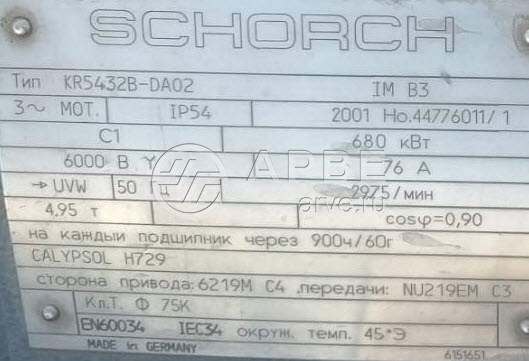 SCHORCH
Тип KR5432B-DA02 IM B3
3~ МОТ. IP54 2001 Но.44776011/1
С1 680 кВт
6000 В Y 76 А
→UVW 50 Гц 2975/мин
4,95 т cosφ=0,90
на каждый подшипник через 900ч/60г
CALYPSOL H729
сторона привода:6219M C4 ,передачи: NU219EM C3
Кл.Т. Ф 75К
EN60034 IEC34 окруж. темп. 45°Э
MADE IN GERMANY 6151651
АРВЕ
arve.ru